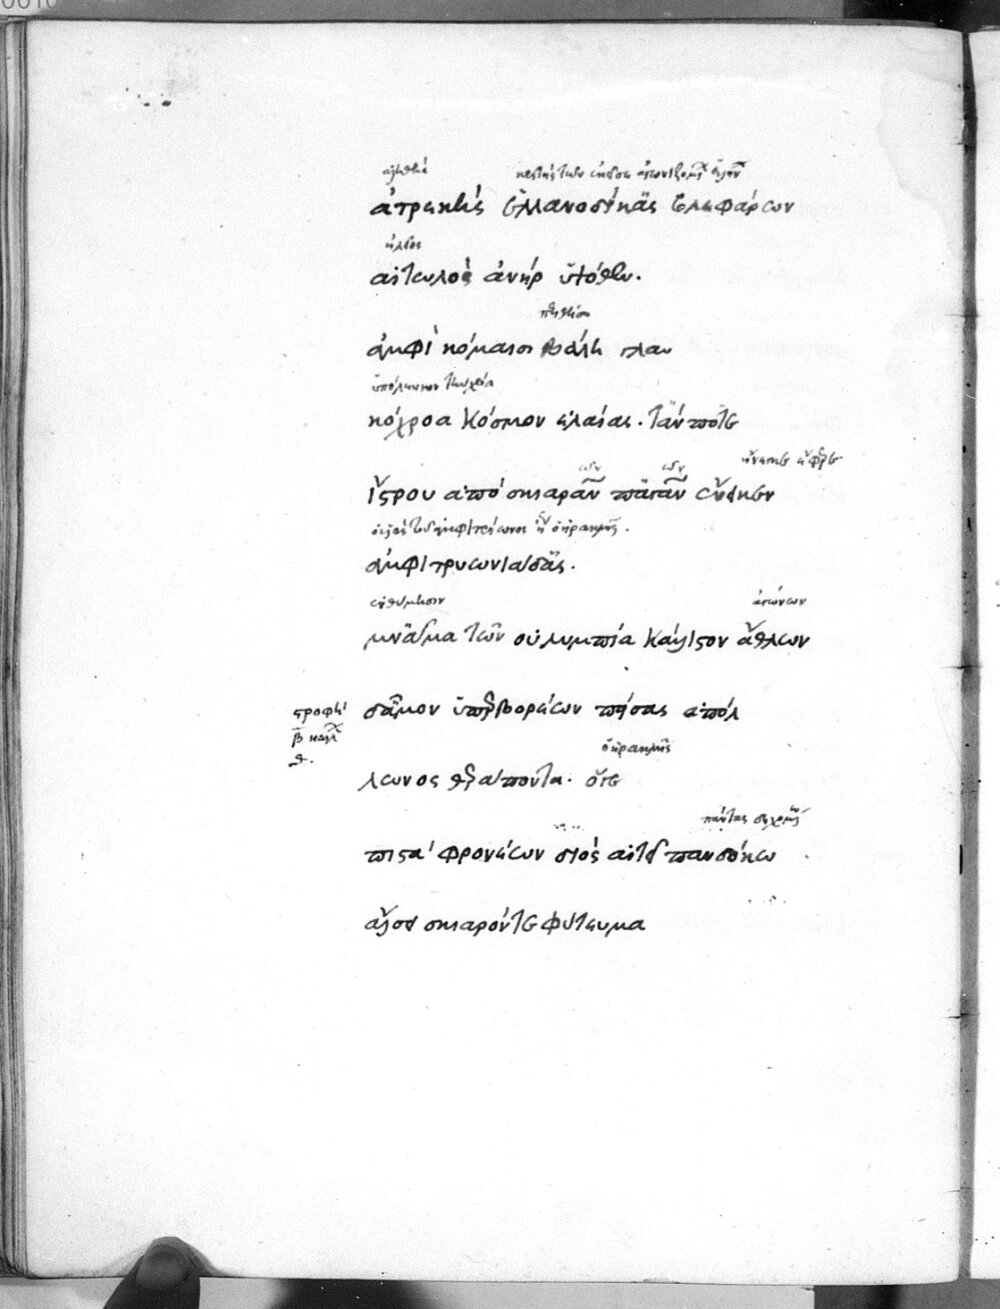 ἀληθὴς
ἀτρεκὴς ἑλλανοδίκας βλεφάρων
αἰτωλὸς ἀνὴρ ὑψόθεν.
ἀμφὶ κόμαισι βάλῃ γλαυ
κόχροα κόσμον ἐλαίας. τάν ποτε
ἴστρου ἀπὸ σκιαρᾶν παγᾶν ἔνεικεν
ἀμφιτρυωνιάδας.
ἐνθύμησιν ἀγώνων
μνᾶμα τῶν οὐλυμπία κάλλιστον ἄθλων
στροφὴ δᾶμον ὑπερβορέων πείσας ἀπόλ
β κώλων
θ.
ὁ ἡρακλῆς
λωνος θεράποντα. ὅγε
πιστὰ φρονέων διὸς αἴτει πανδόκῳ
ἄλσει σκιαρόν τε φύτευμα